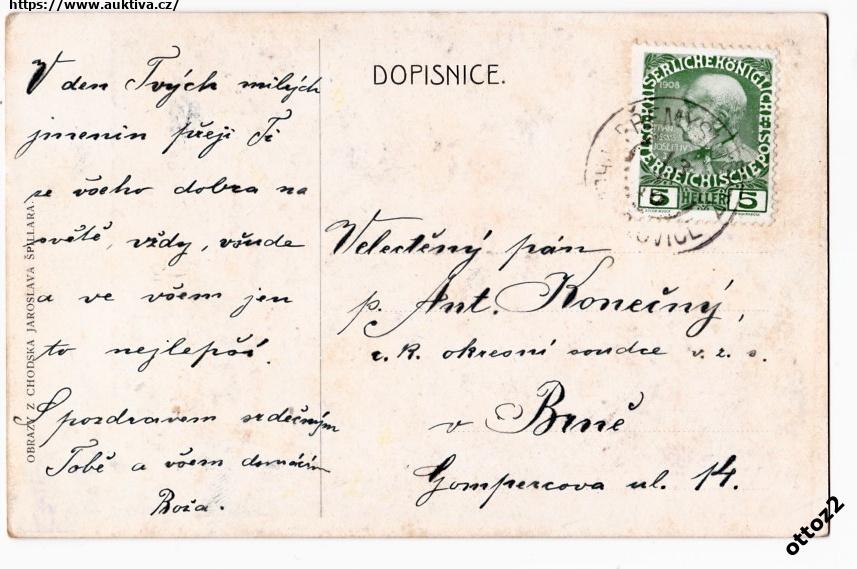 https://www.auktiva.cz/
DOPISNICE.
V den Tvých milých
jmenin přeji Ti
ze všeho dobra na
světě, vždy, všude
a ve všem jen
to nejlepší.
S pozdravem srdečným
Tobě a všem domácím
Boža.
OBRAZY Z CHODSKA JAROSLAVA ŠPILLARA.
KAISERLICHE KÖNIGLICHE
ÖSTERREICHISCHE POST
1908
5 HELLER 5
PŘEMYSL
OVICE
Velectěný pán
p. Ant. Konečný,
c. k. okresní soudce v. z. s.
v Brně
Gompercova ul. 14.
ottoz2